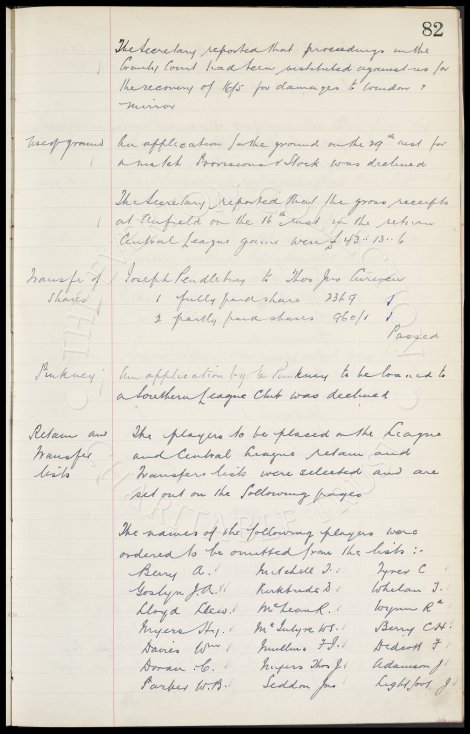 82
The Secretary reported that proceedings in the
County Court had been instituted against us for
the recovery of 16/5 for damages to window &
mirror
Use of ground
An application for the ground on the 29th inst for
a match Provisions v Stock was declined
The Secretary reported that the gross receipts
at Anfield on the 16th inst in the return
Central League game were £43-13-6
Transfer of
Shares
Joseph Pendlebury to Thos Jno Curwen
1 fully paid share 2369
2 partly paid shares 960/1
Passed
Pinkney
An application by E Pinkney to be loaned to
a Southern League Club was declined
Retain and
Transfer
lists
The players to be placed on the League
and Central League retain and
Transfers lists were selected and are
set out on the following pages
The names of the following players were
ordered to be omitted from the lists :-
Berry A. Mitchell T. Tyrer C
Goslyn J.A. Kirkbride D Whelan T.
Lloyd Llew. McLean R. Wynn Rd
Myers Hy. McIntyre WS. Berry C.H.
Davies Wm Mullins F.J. Didcott F
Doran C. Meyers Thos J. Adamson J
Parker W.B. Seddon Jno Lightfoot J
THE EVERTON COLLECTION
CHARITABLE TRUST